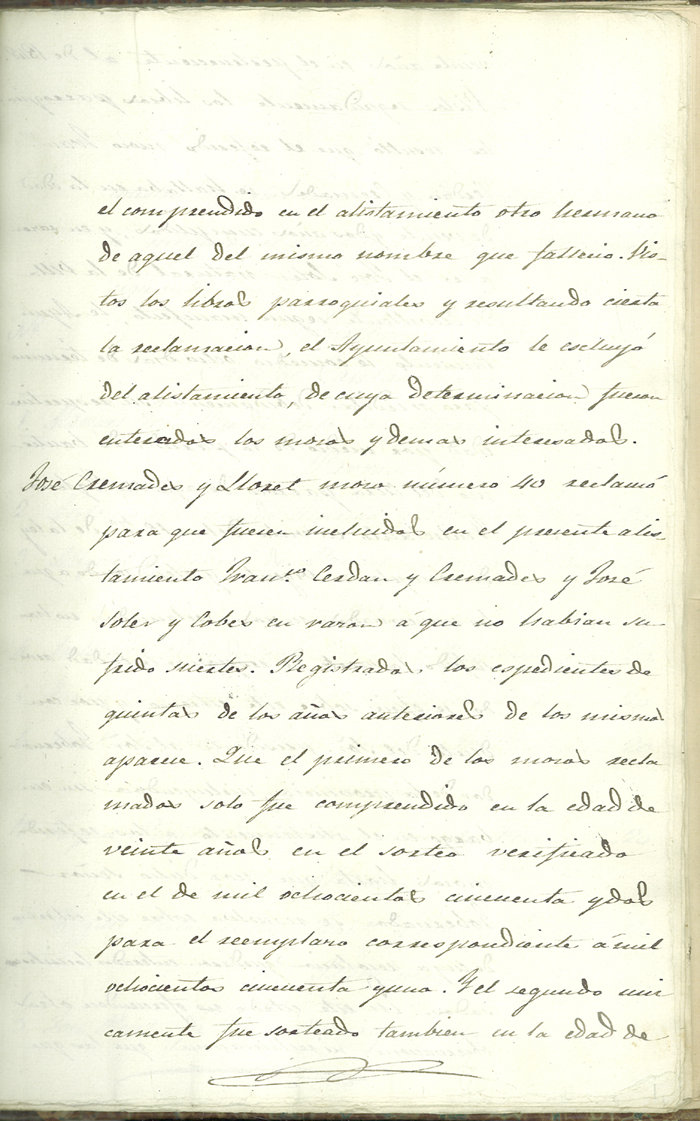 el comprendido en el alistamiento otro hermano
de aquel del mismo nombre que fallecio. Vis-
tos los libros parroquiales y resultando cierta
la reclamacion, el Ayuntamiento le escluyó
del alistamiento, de cuya determinacion fueron
enterados los moros y demas interesados.
José Cremades y Lloret moro número 40 reclamó
para que fuesen incluidos en el presente alis-
tamiento Fran.co Cerdan y Cremades y José
Soler y Cobes en raron á que no habian su-
frido suertes. Registrados los espedientes de
quintas de los años anteriores de los mismos
aparece. Que el primero de los moros recla
mados solo fue comprendido en la edad de
veinte años en el sorteo verificado
en el de mil ochocientos cincuenta y dos
para el reemplaro correspondiente á mil
ochocientos cincuenta y uno. Y el segundo uni
camente fue sorteado tambien en la edad de